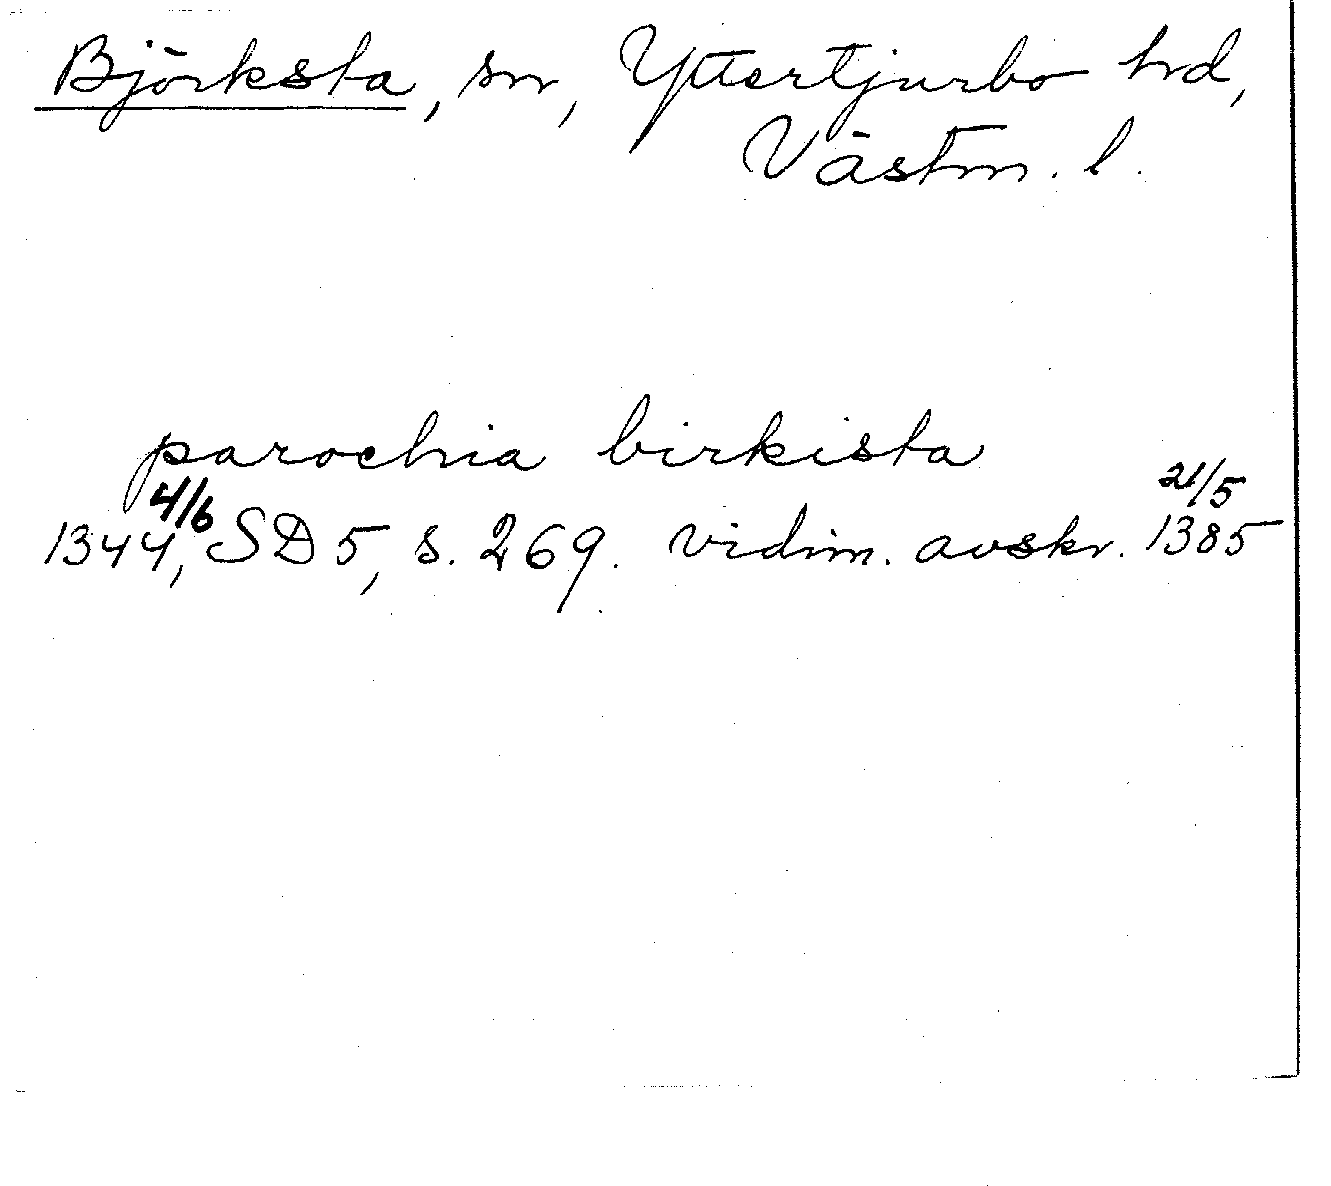 Björksta, sn, Yttertjurbo hd,
Västm. l.
parochia birkista
4/6 21/5
1344, SD 5, s. 269. vidim. avskr. 1385